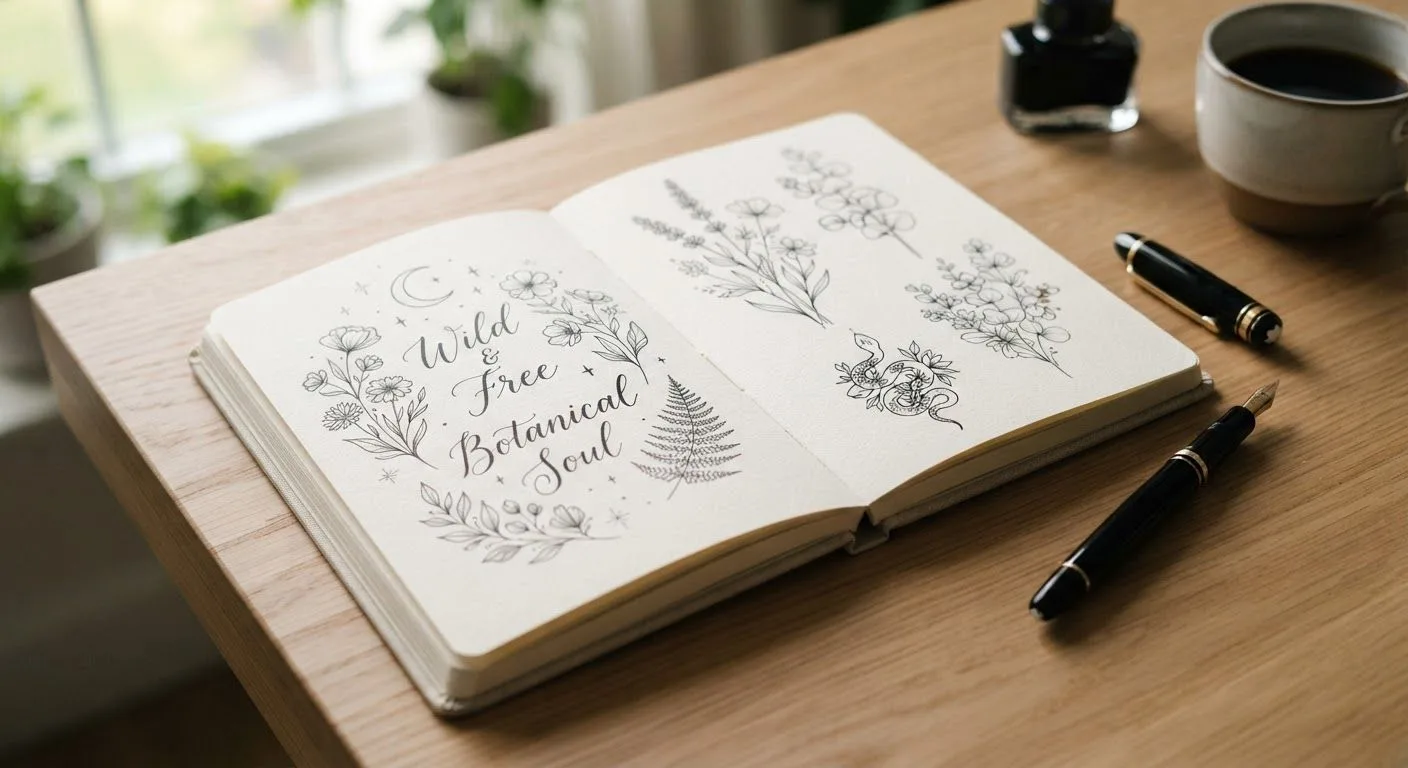 Wild
&
Free
Botanical
Soul